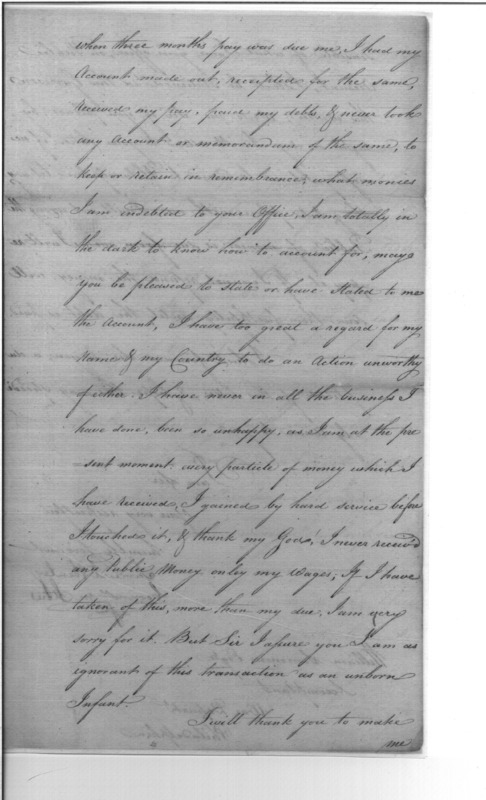 when three months pay was due me, I had my
Account made out, receipted for the same,
received my pay, paied my debts, & never took
any Account or memorandum of the same, to
keep or retain in remembrance, what monies
I am indebted to your Office, I am totally in
the dark to know how to account for, may
you be pleased to state or have stated to me
the Account, I have too great a regard for my
name & my Country to do an Action unworthy
of either. I have never in all the business I
have done, been so unhappy, as I am at the pre
=sent moment every particle of money which I
have received, I gained by hard service before
I touched it, & thank my God, I never receiv'd
any Public Money only my Wages, If I have
taken of this, more than my due, I am very
sorry for it. But Sir I assure you I am as
ignorant of this transaction as an unborn
Infant.
I will thank you to make
me